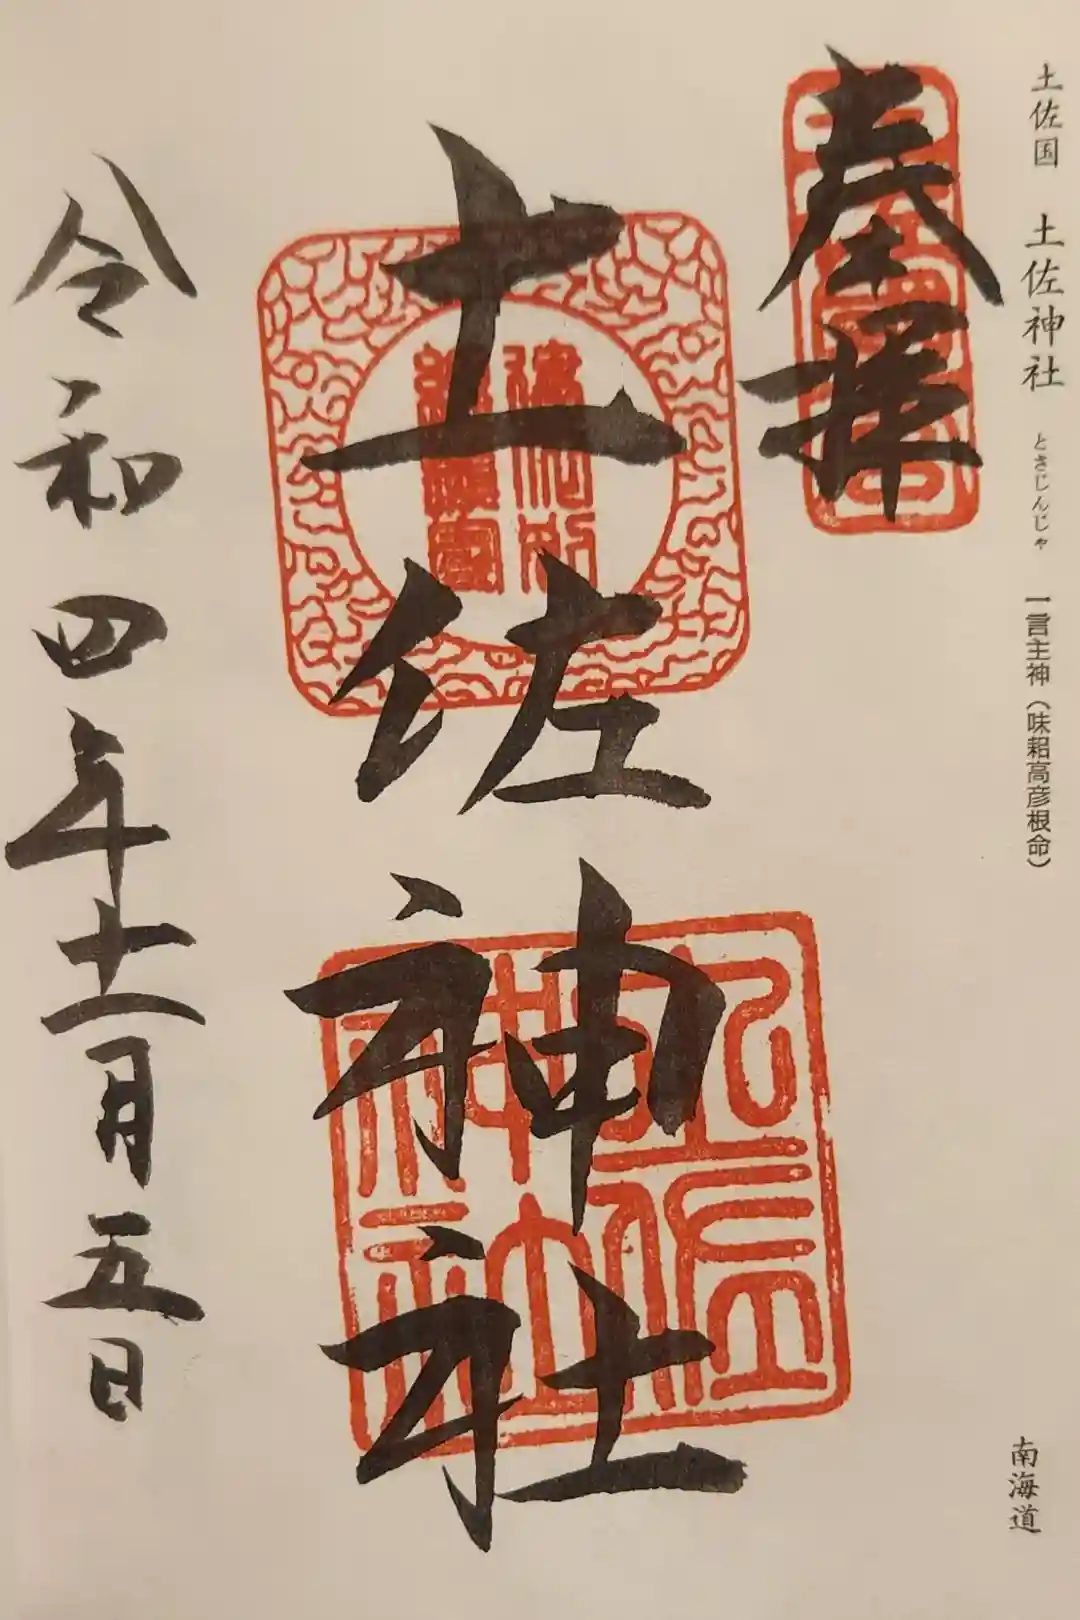 土佐国 土佐神社 とさじんじゃ 一言主神（味耜高彦根命）
南海道
奉拝
土佐神社
令和四年十一月五日
土佐神社